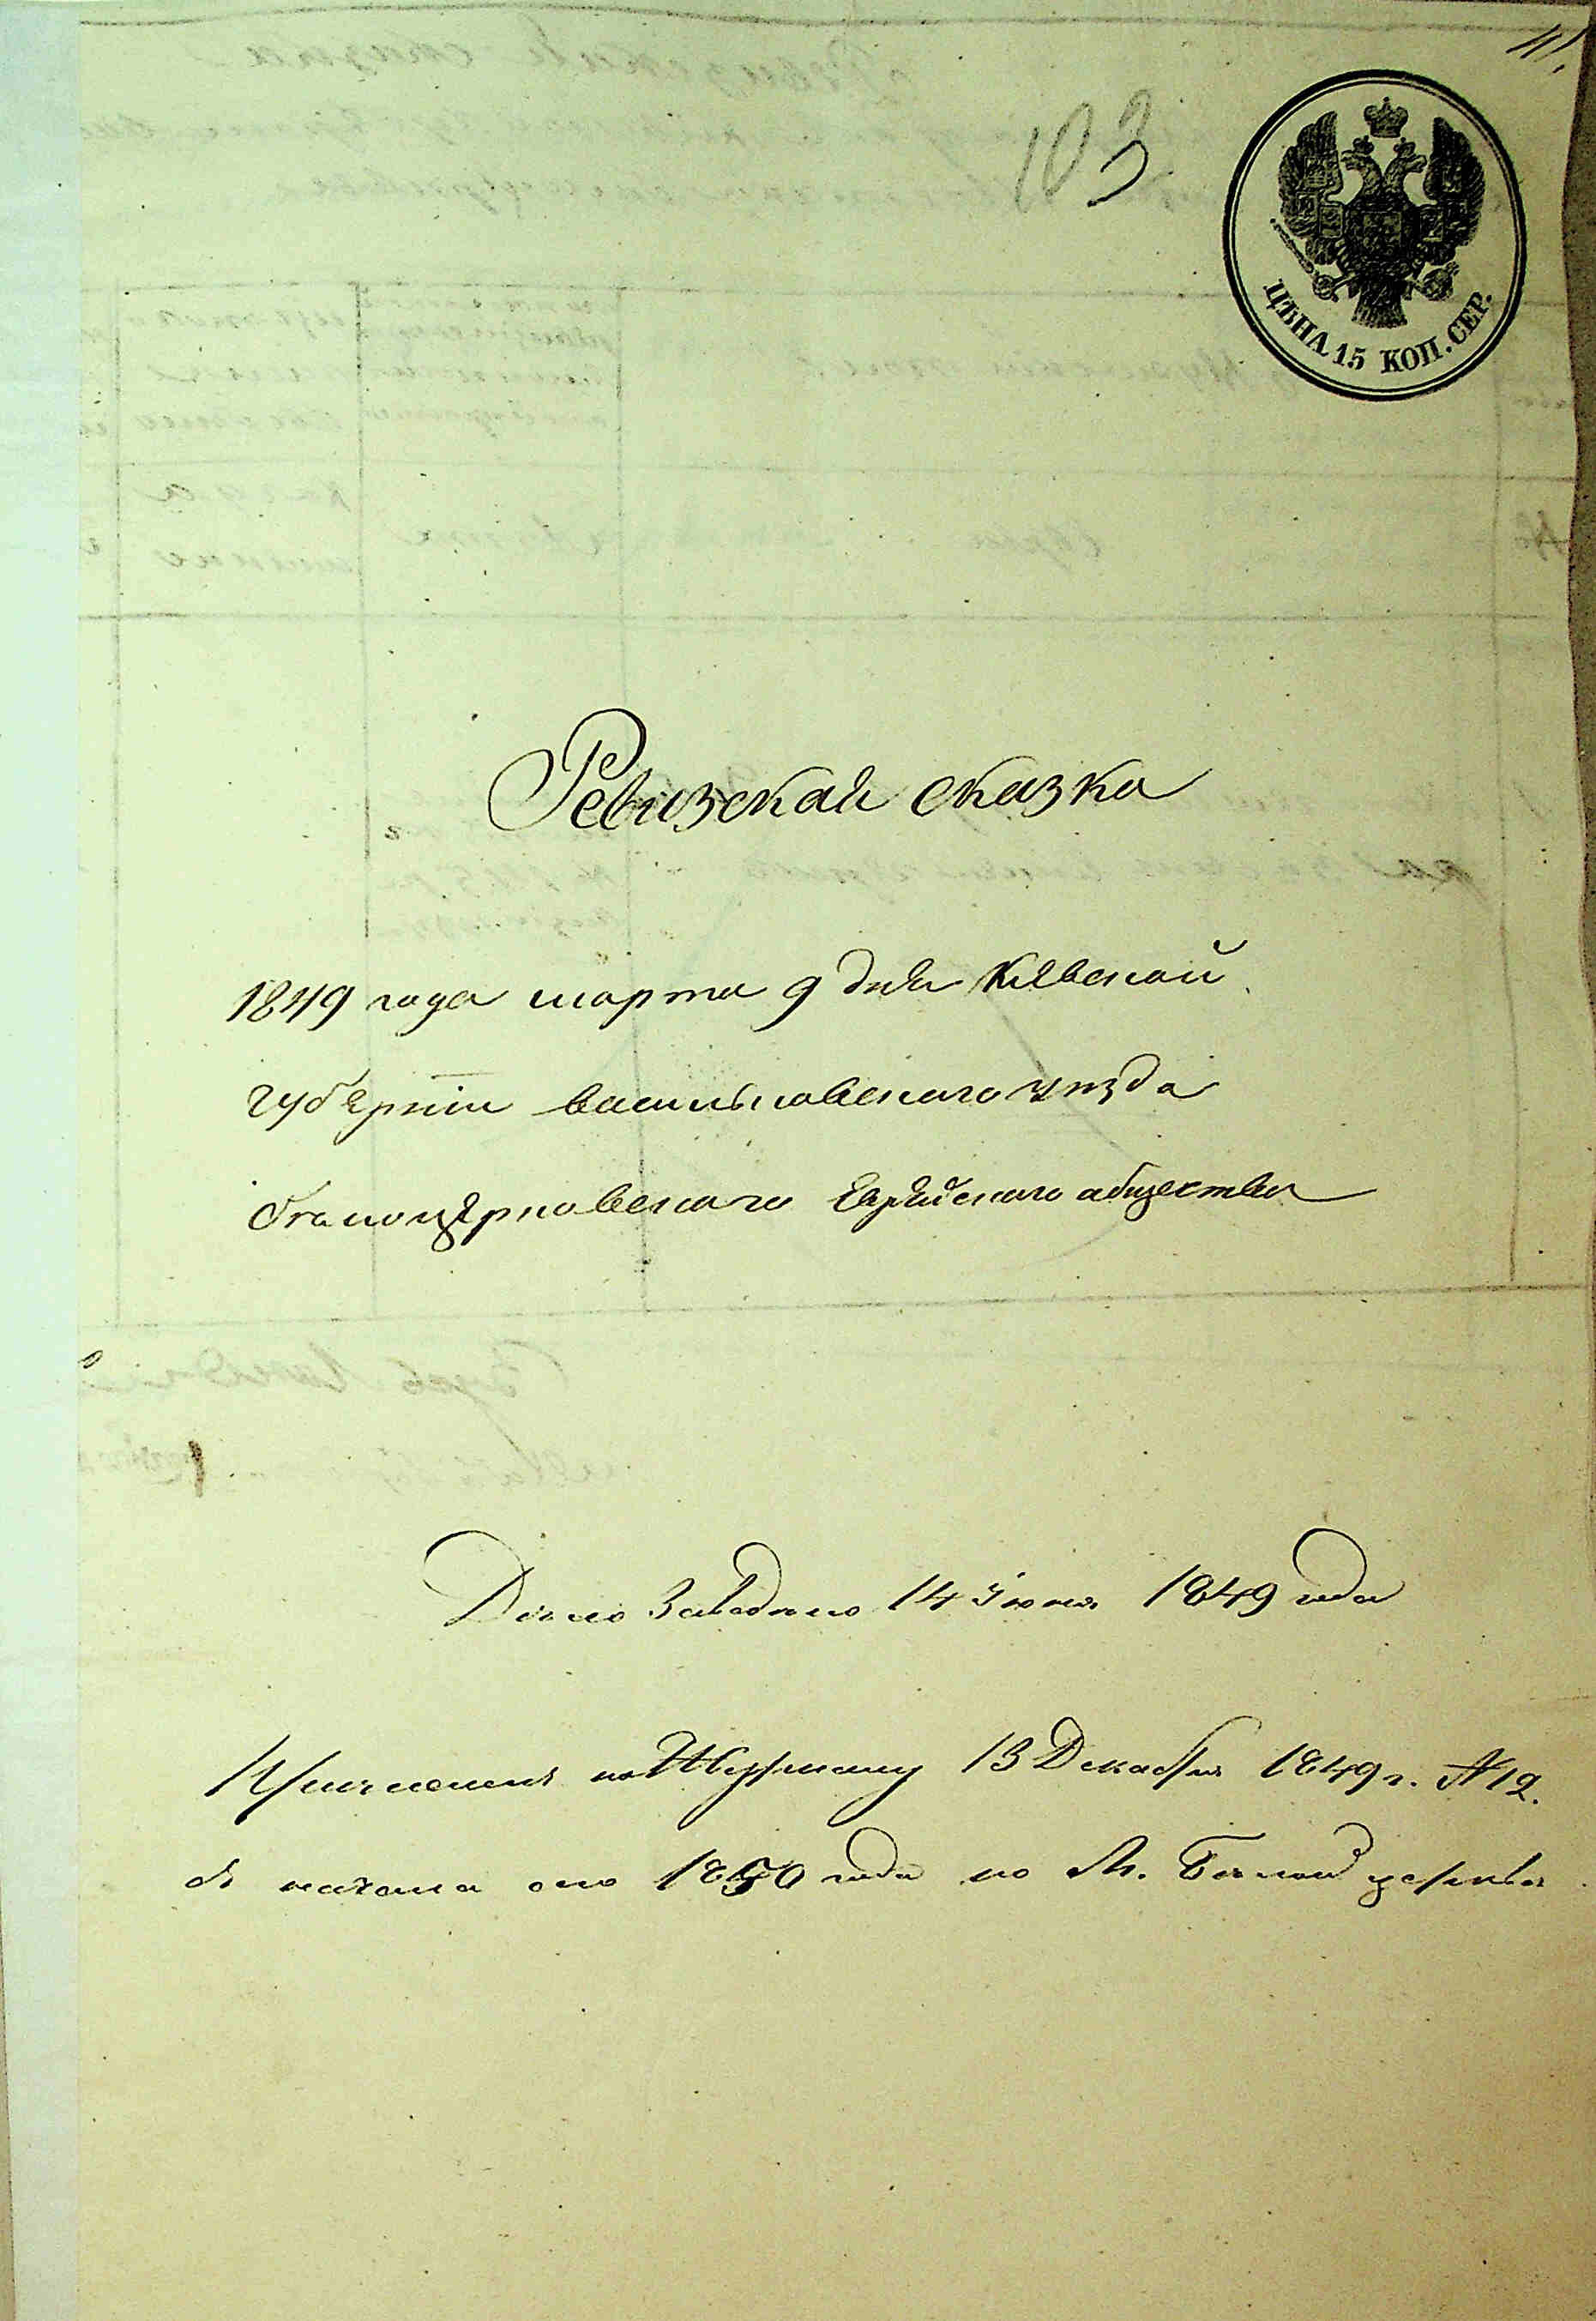 103
ЦѢНА 15 КОП. СЕР.
Ревизская сказка
1849 года марта 9 дня Киевской
губернии васильковского уезда
белоцерковского Еврейского общества
Дело Заведено 14 Июня 1849 года
Причислены по Журналу 13 Декабря 1849 г. № 12.
с начала 1850 года по М. Белой церкви